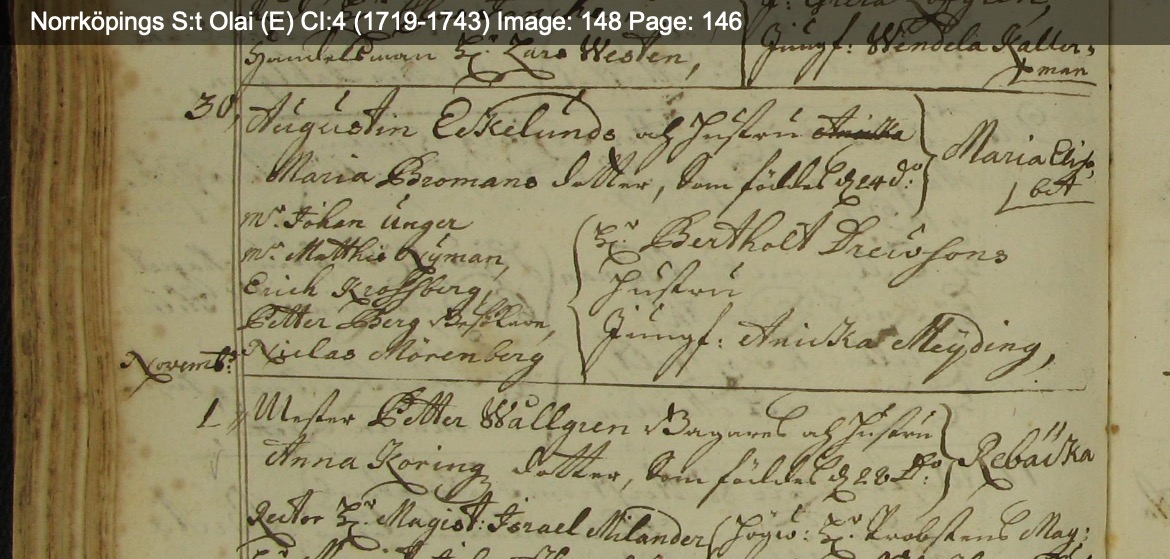 Norrköpings S:t Olai (E) CI:4 (1719-1743) Image: 148 Page: 146
Handelsman Hr Lars Westen,
Jungf: Wendela Katter-
man
30, Augustin Eckelunds och Hustru
Maria Bromans dotter, Som föddes d 24 do:
Maria Elisa-
bet
mr. Johan Unger
mr. Matthis Nyman,
Erich Krossberg,
Petter Berg
Niclas Mörenberg
Hr Bertholt Drewsons
Hustru
Jungf: Anicka Meÿding,
Novembr:
1, Mester Petter Wallgren Bagares och Hustru
Anna Koring dotter, Som föddes d 28 do:
Rebäcka
Rector Hr Magist: Israel Milander
Högw: Hr Probstens Mag: